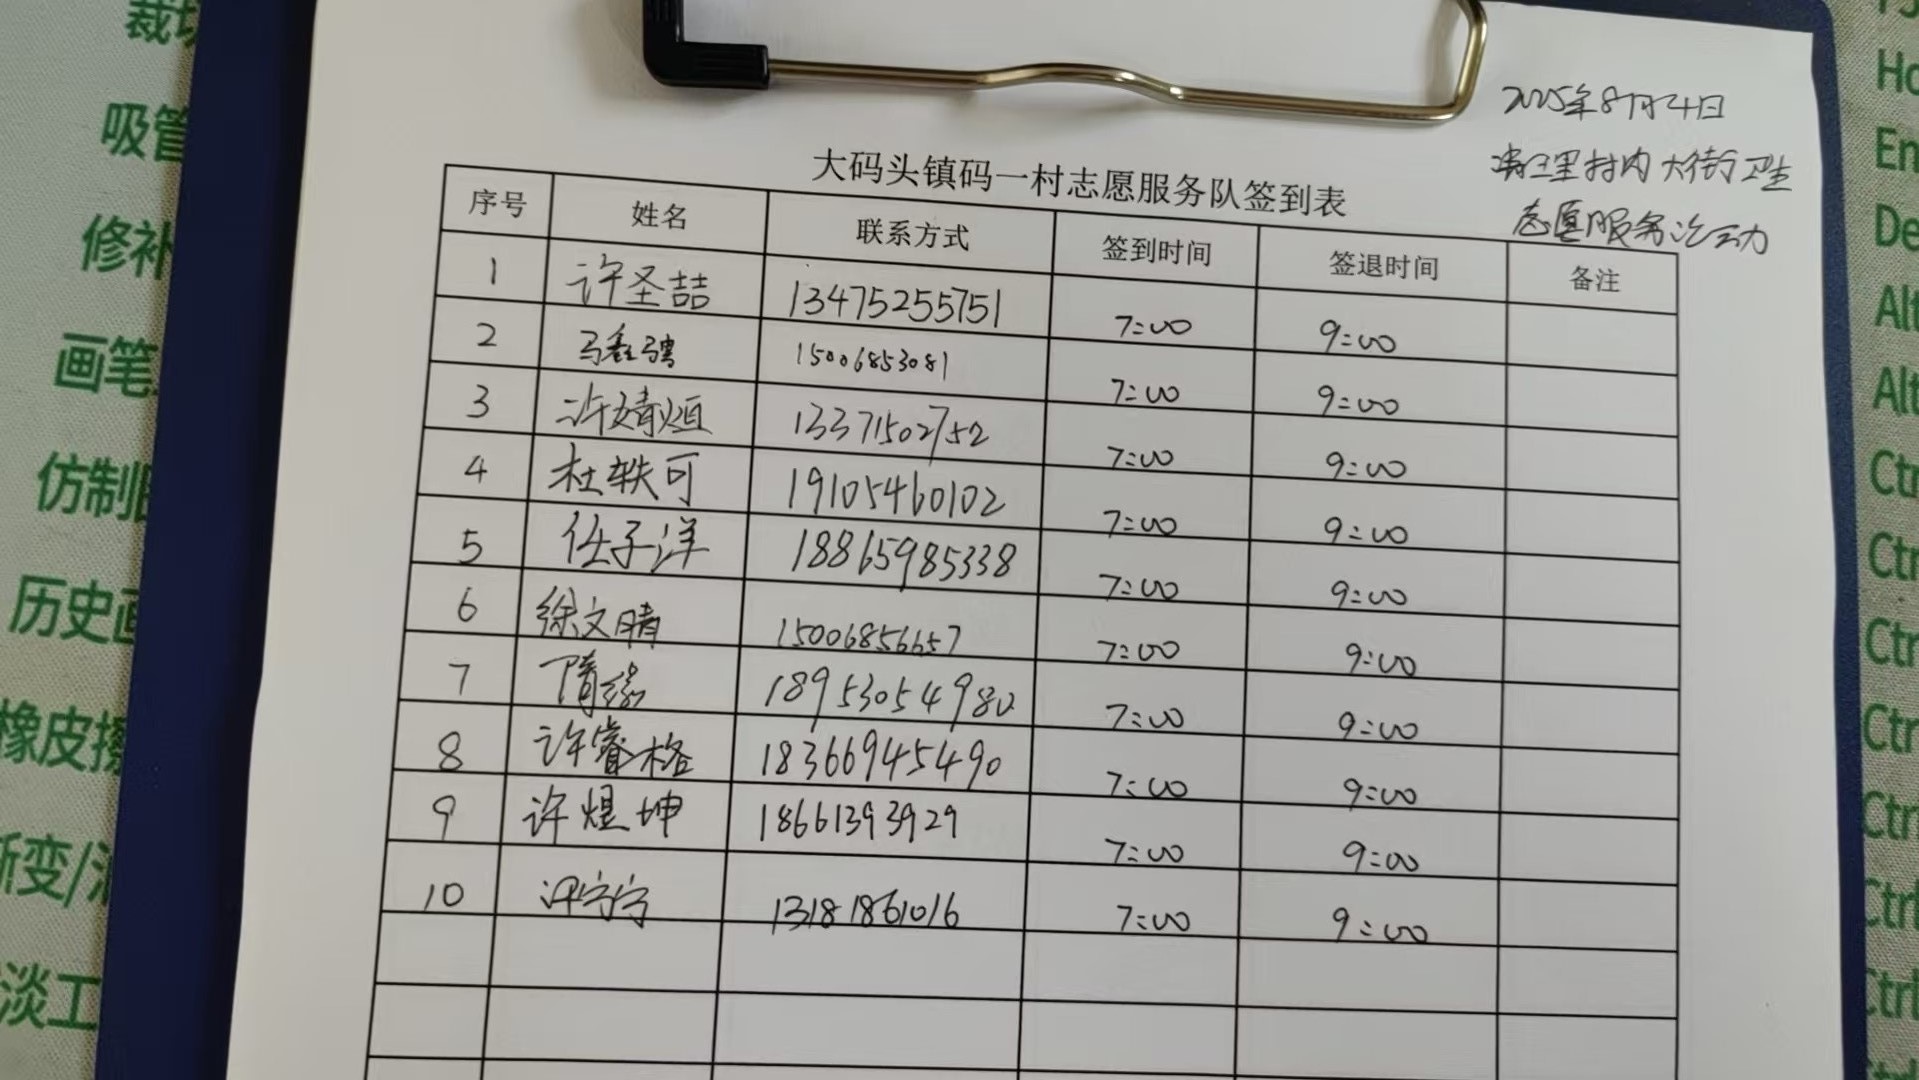 裁切
吸管
修补
画笔
仿制图
历史画
橡皮擦
渐变/油
淡工
2025年8月24日
清理村内大街卫生
志愿服务活动
大码头镇码一村志愿服务队签到表
序号 姓名 联系方式 签到时间 签退时间 备注
1 许圣喆 13475255751 7:00 9:00
2 15006853081 7:00 9:00
3 许婧烜 13371502752 7:00 9:00
4 杜轶可 19105460102 7:00 9:00
5 任子洋 18865985338 7:00 9:00
6 徐文晴 15006856657 7:00 9:00
7 隋缘 18953054980 7:00 9:00
8 许睿格 18366945490 7:00 9:00
9 许煜坤 18661393929 7:00 9:00
10 13181861016 7:00 9:00
Ho
En
De
Alt
Alt
Ctr
Ctr
Ctr
Ctr
Ctr
Ctrl
Ctrl